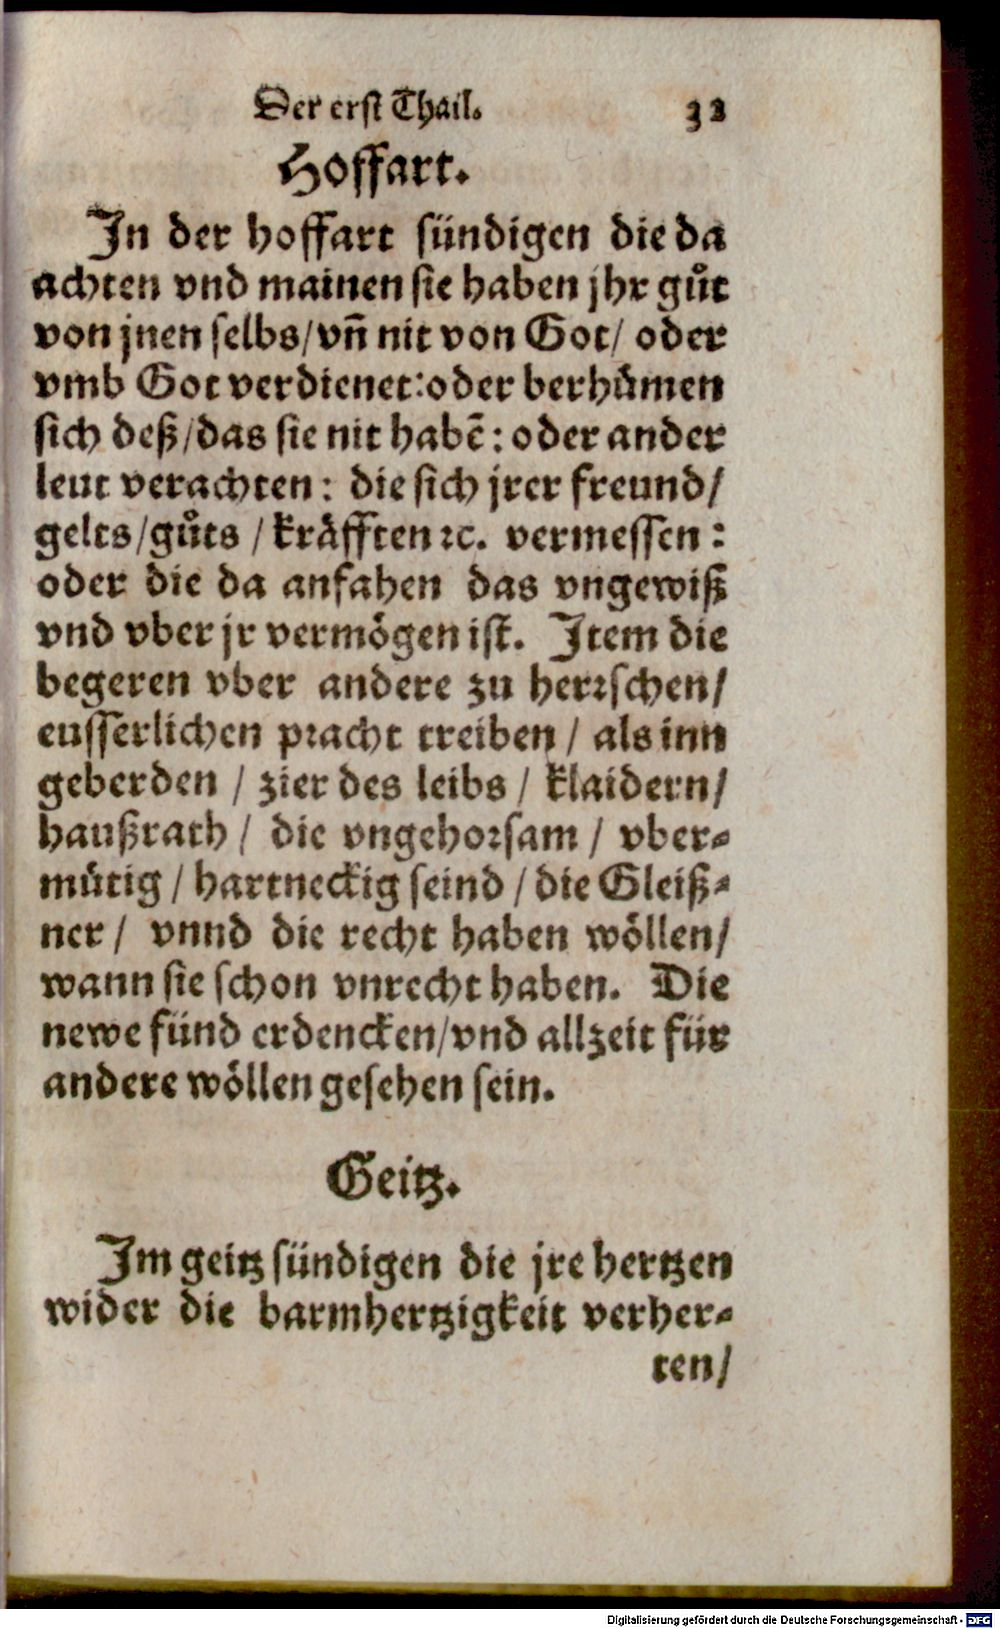 Der erst Thail. 32
Hoffart.
In der hoffart sündigen die da
achten vnd mainen sie haben jhr gůt
von jnen selbs/vñ nit von Got/ oder
vmb Got verdienet:oder berhůmen
sich deß/das sie nit habẽ: oder ander
leut verachten: die sich jrer freund/
gelts/gůts / kräfften ꝛc. vermessen:
oder die da anfahen das vngewiß
vnd vber jr vermögen ist. Item die
begeren vber andere zu herrschen/
eusserlichen pracht treiben / als inn
geberden / zier des leibs / klaidern/
haußrath / die vngehorsam / vber-
mütig / hartneckig seind / die Gleiß-
ner / vnnd die recht haben wöllen/
wann sie schon vnrecht haben. Die
newe fünd erdencken/vnd allzeit für
andere wöllen gesehen sein.
Geitz.
Im geitz sündigen die jre hertzen
wider die barmhertzigkeit verher-
ten/
Digitalisierung gefördert durch die Deutsche Forschungsgemeinschaft - DFG